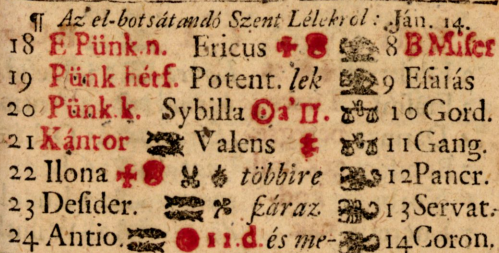 ¶ Az el-botsátandó Szent Lélekről: Ján. 14.
18 E Pünk. n. Ericus 8 B Miser
19 Pünk hétf. Potent. lek 9 Esaiás
20 Pünk. k. Sybilla a' II. 10 Gord.
21 Kántor Valens 11 Gang.
22 Ilona többire 12 Pancr.
23 Desider. száraz 13 Servat.
24 Antio. 11.d. és me- 14 Coron.